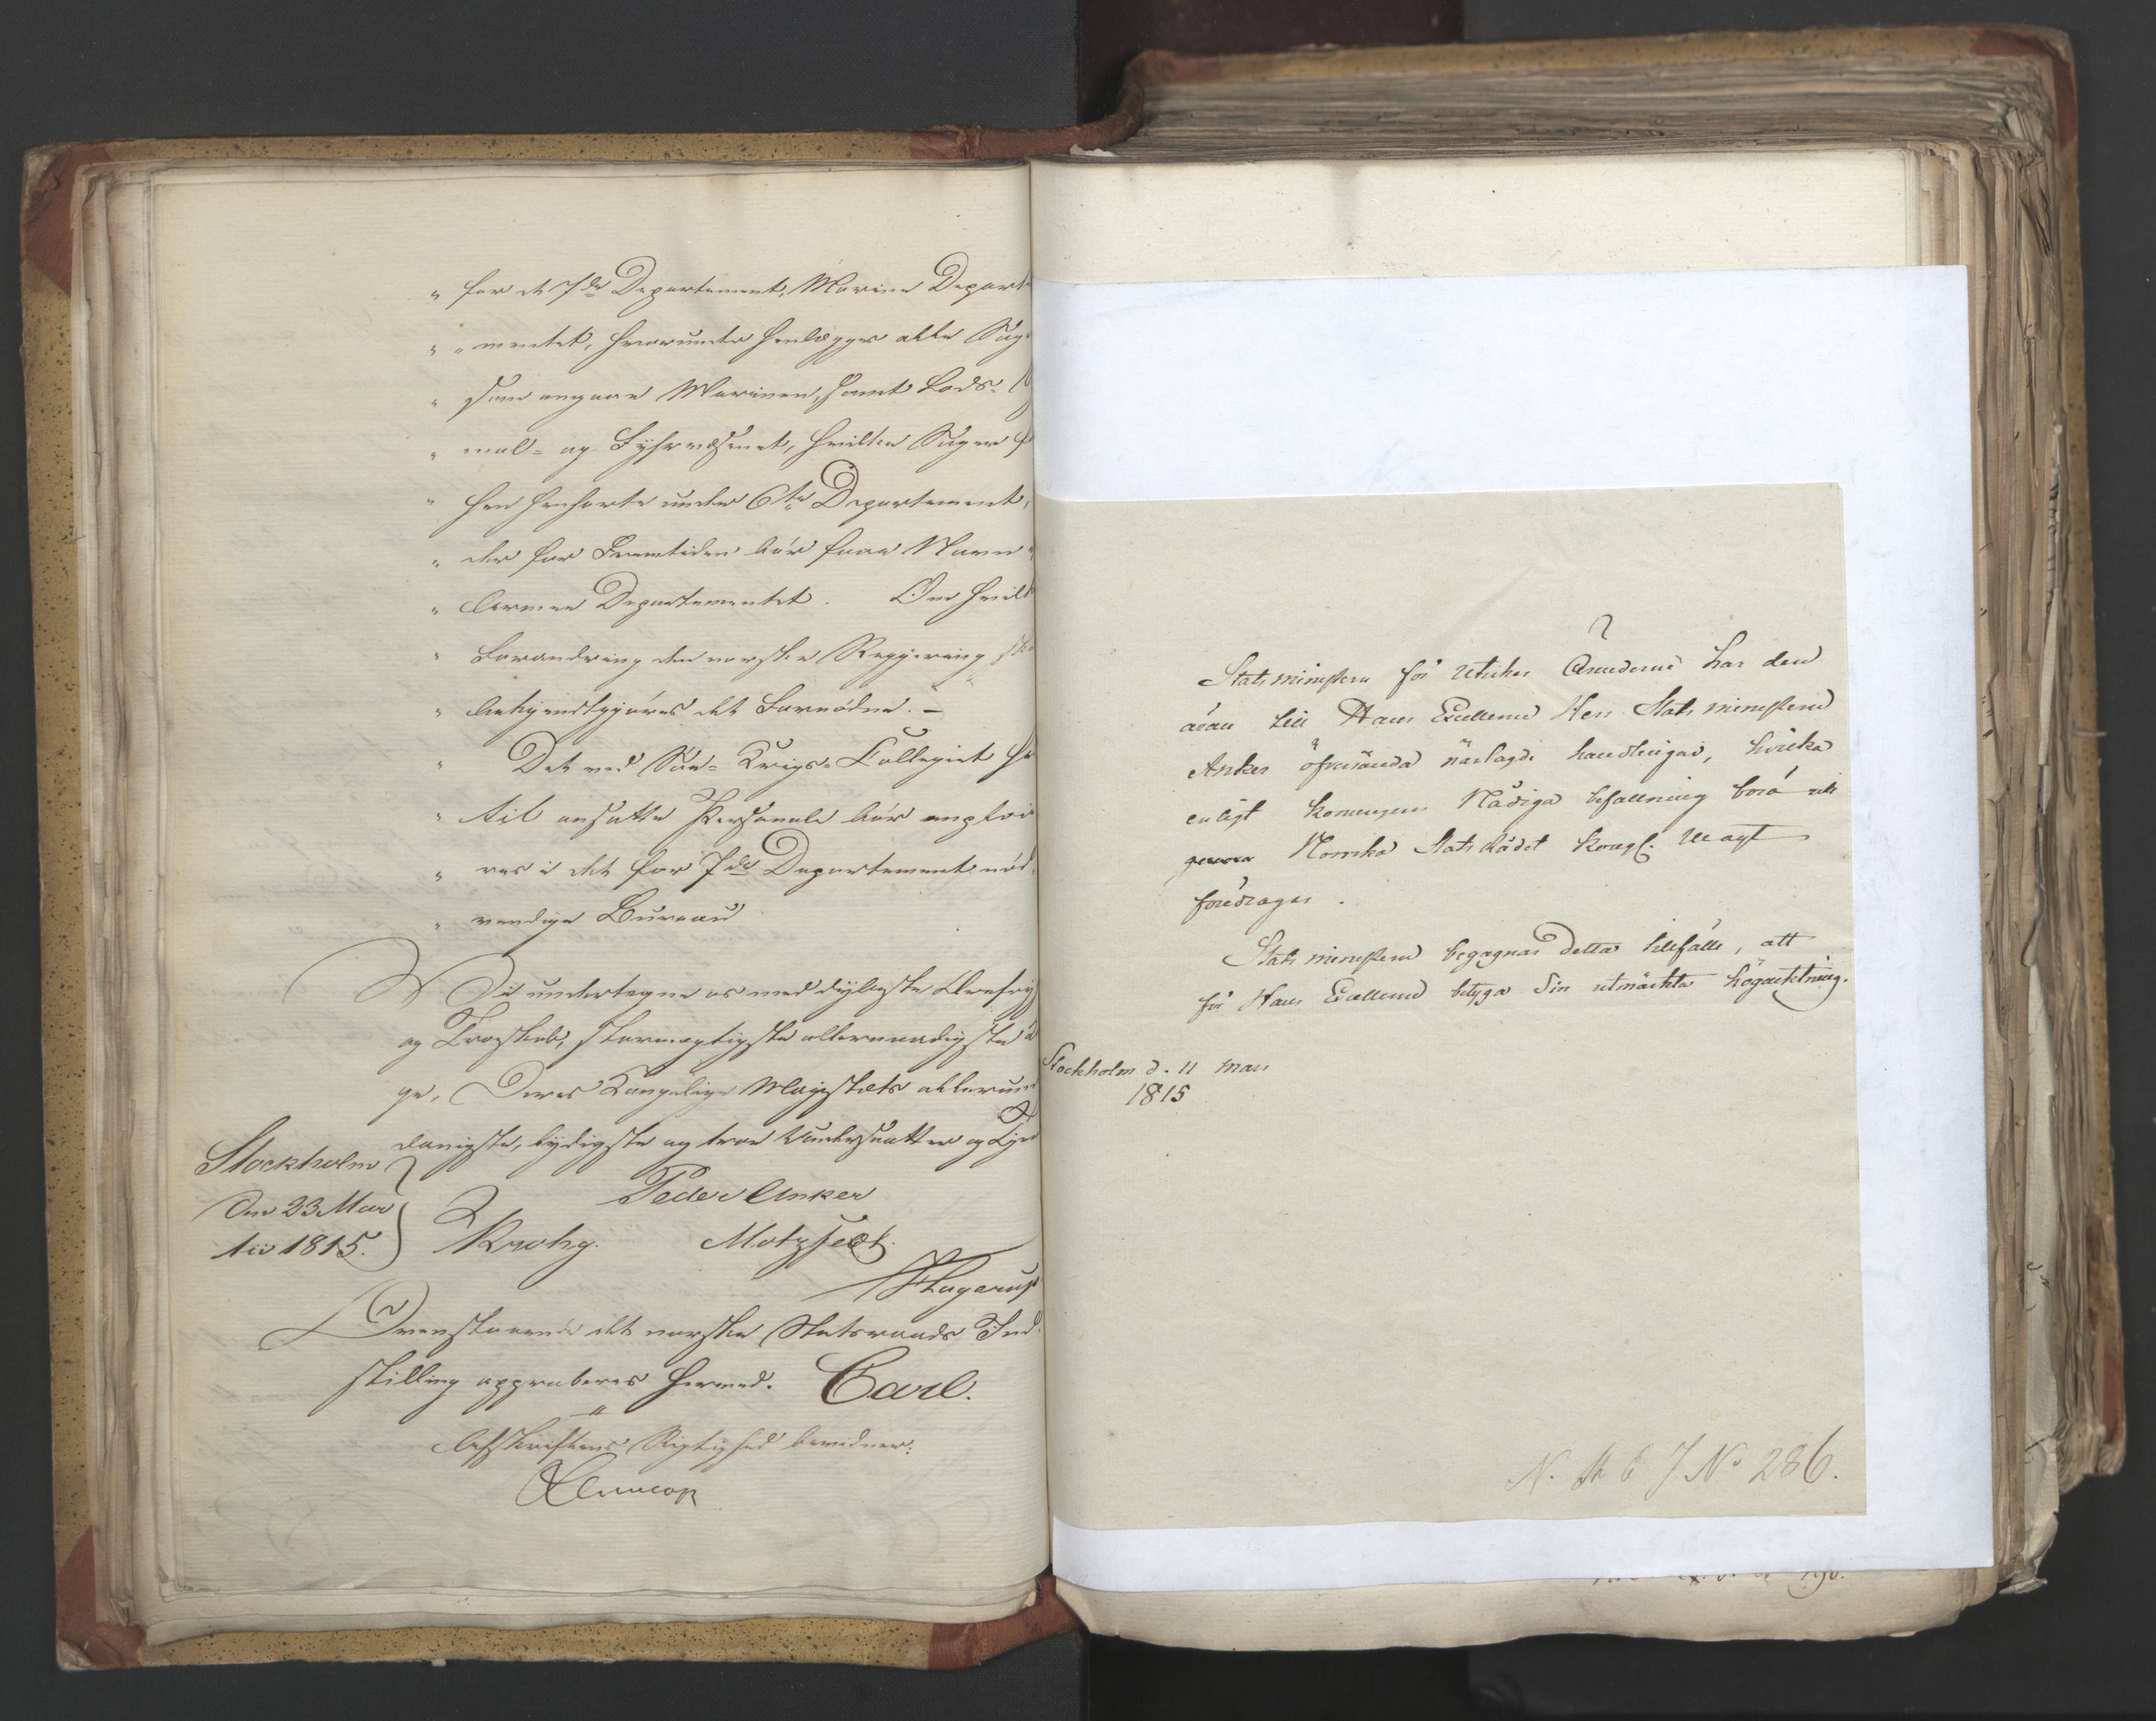 " for et 7de Departement, Marine Depart
" " mentet, hvorunder henlægges alle Sag
" som angaae Marinen, samt Lods-
" mal- og Fyhrvæsenet, hvilke Sager
" hen henhørte under 6te Departement,
" der for Fremtiden bør faae Navn
" Armee Departementet. Om hvilk
" Forandring den norske Regjering
" bekjendtgjøres det Fornødne. -
" Det ved Søe-Krigs-Collegiet
" til ansatte Personale bør emploi
" res i det for 7de Departement nød
" vendige Bureau
Vi undertegne os med dybeste Ærefrygt
og Troskab, stormægtigste allernaadigste
ge, Deres Kongelige Majestæts allerun
danigste, lydigste og troe Undersaatter og Tjen
Stockholm
den 23 Mar
tii 1815.
Peder Anker
Krohg. Motzfeldt.
Hagerup
Ovenstaaende det norske Statsraads Ind-
stilling approberes hermed. Carl.
Afskriftens Rigtighed bevidner.
Stats ministern för Utrikes Ärenderne har den
äran till Hans Excellence Herr Stats ministern
Anker öfversända närlagde handlingar, hvilka
enligt Konungens Nådiga befallning böra uti
Norrska Stats Rådet Kongl. Majt
föredragas.
Stats ministern begagnar detta tillfälle, att
för Hans Excellence betyga Sin utmärkta högacktning.
Stockholm d. 11 Mars
1815
N. St E J No 286.